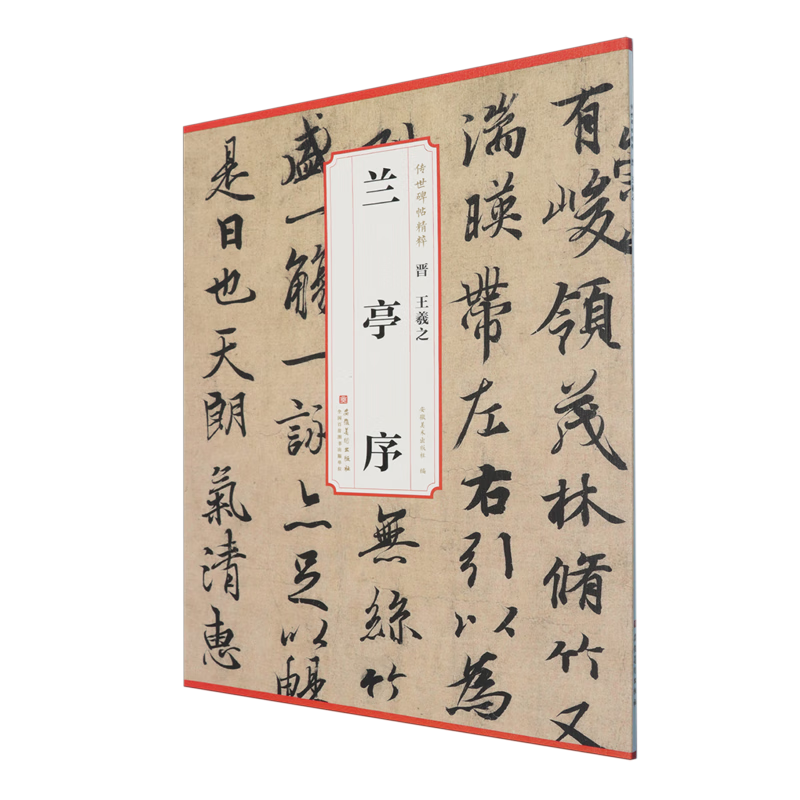 有峻領茂林脩竹又
湍暎帶左右引以為
無絲竹
盛一觴一詠亦足以暢
是日也天朗氣清惠
传世碑帖精粹
晋 王羲之
安徽美术出版社 编
兰亭序
安徽美术出版社